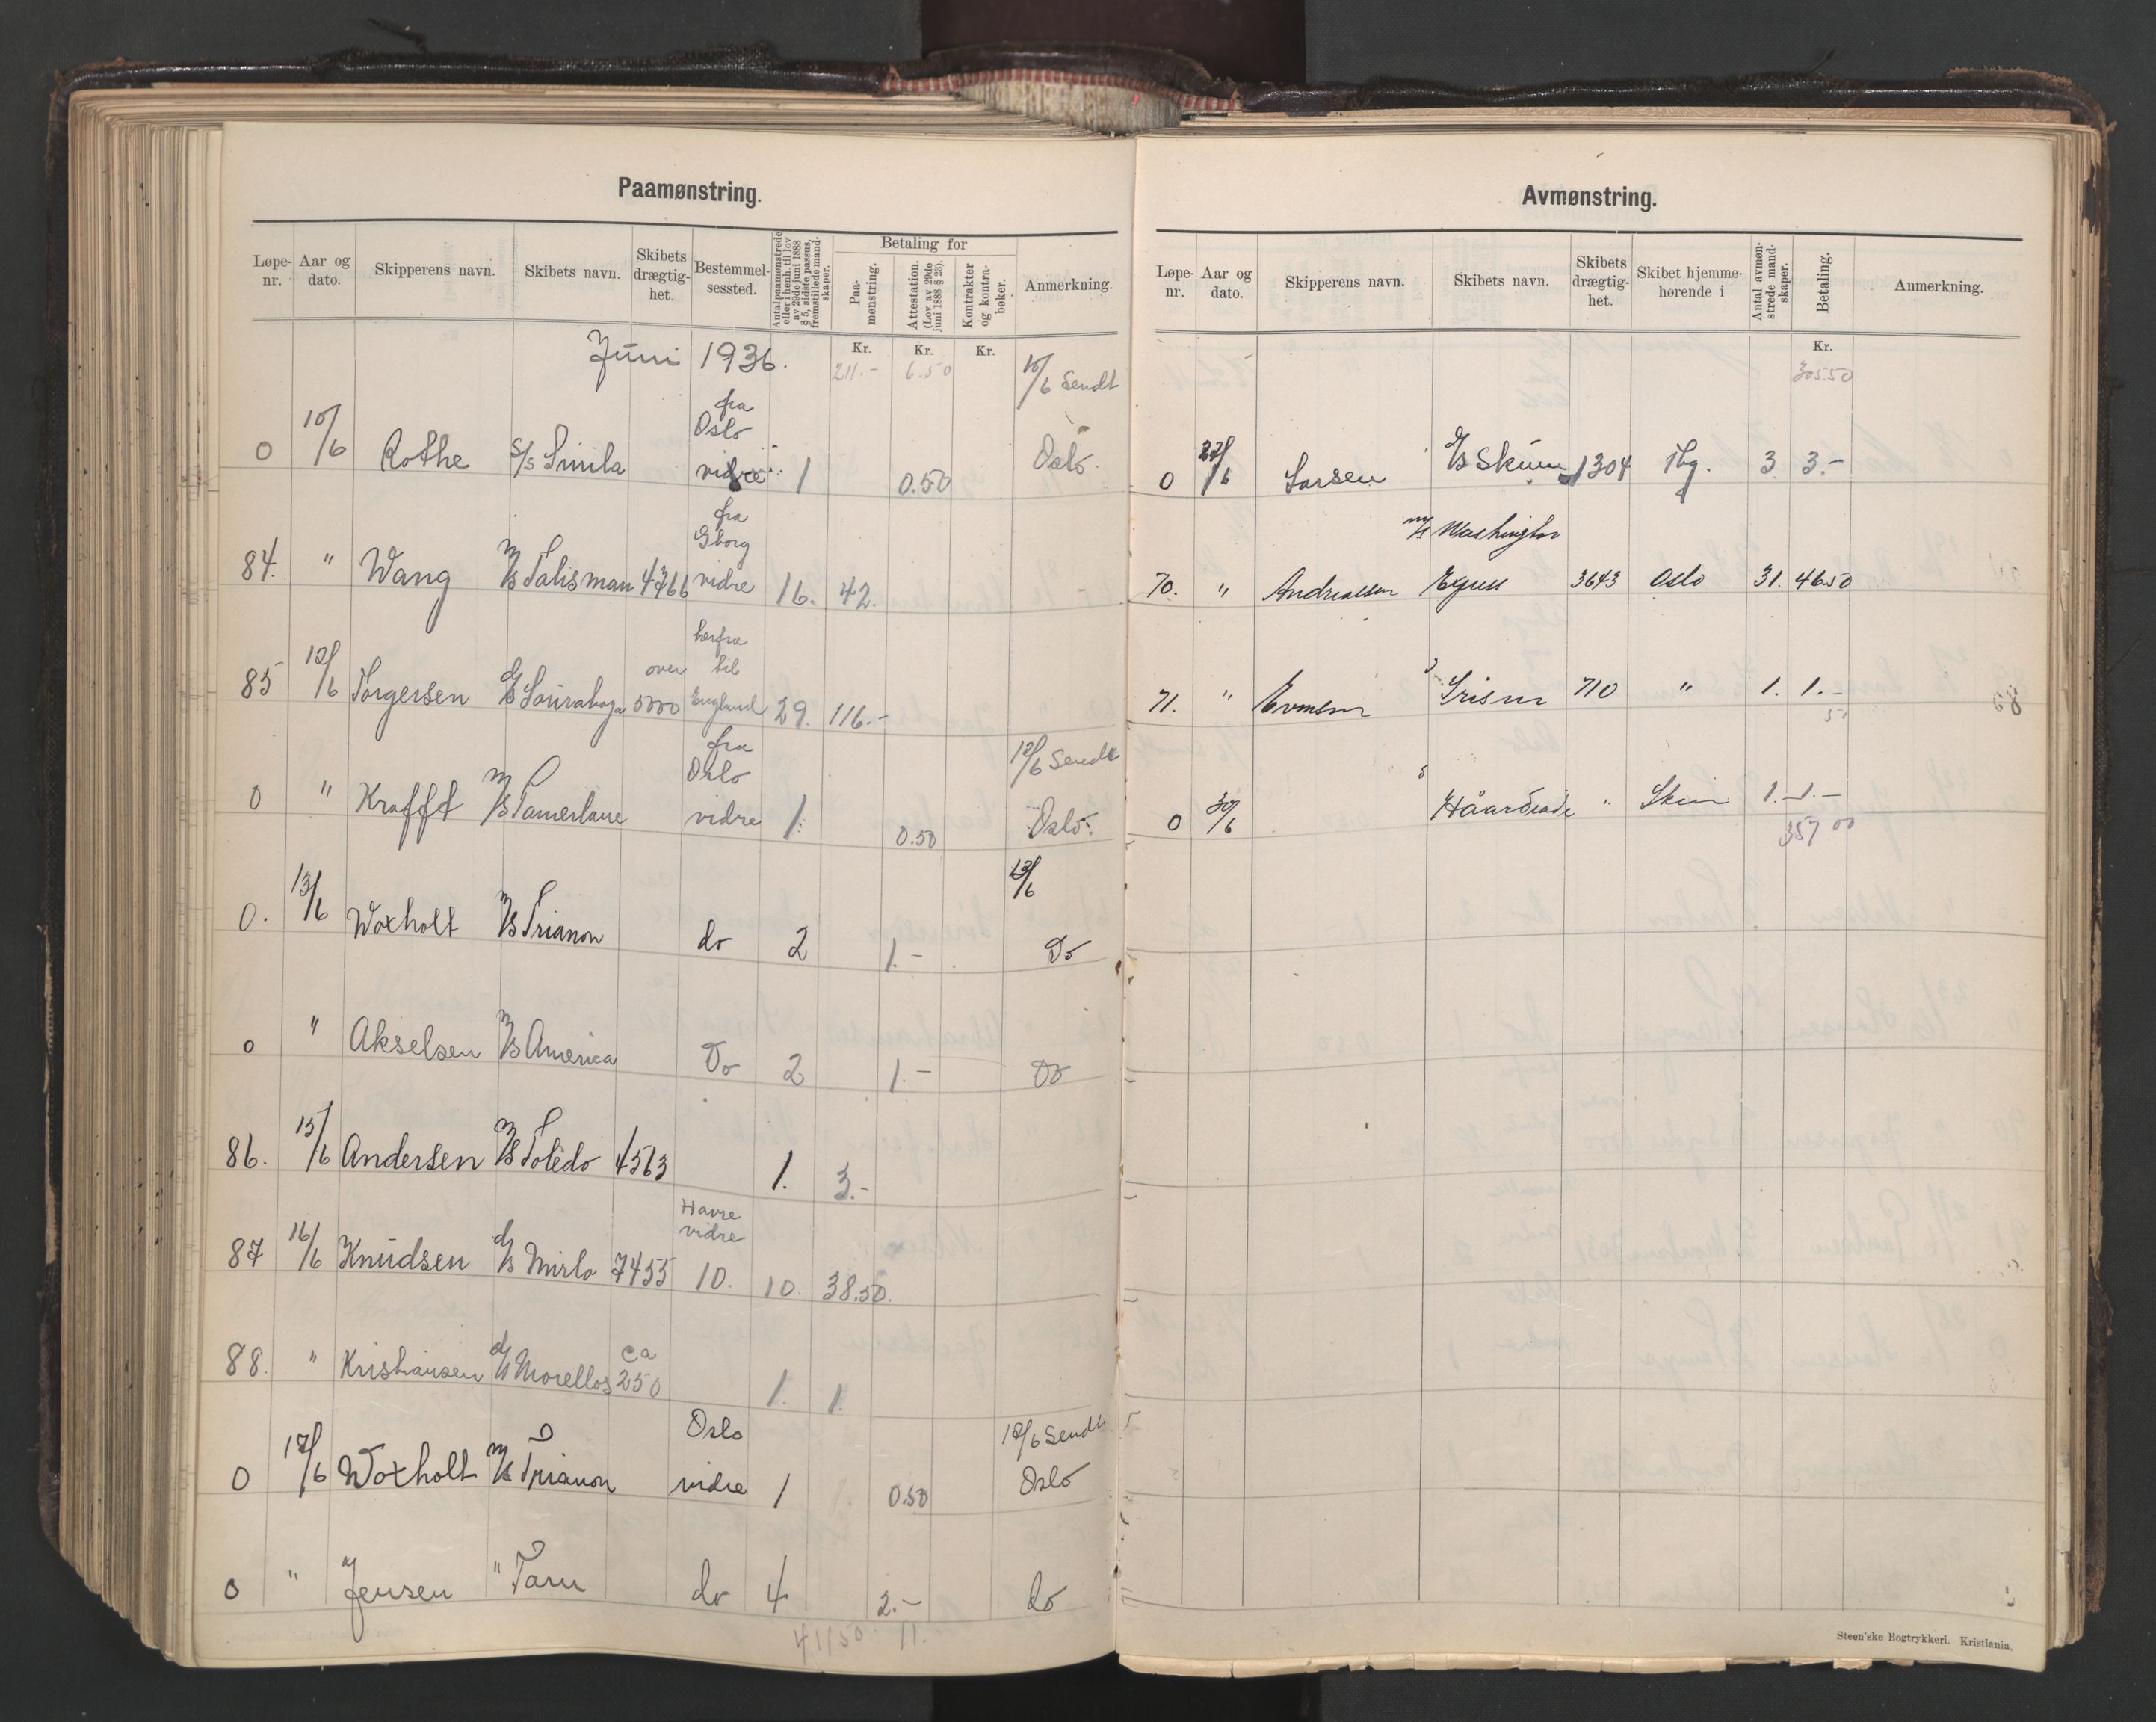 Paamønstring.
Løpe-nr. Aar og dato. Skipperens navn. Skibets navn. Skibets drægtig-het. Bestemmel-sessted. Antal paamønstrede eller i henh. til lov av 29de juni 1888 § 5, sidste passus, fremstillede mand-skaper. Betaling for Paa-mønstring. Attestation. (Lov av 29de juni 1888 § 23). Kontrakter og kontra-bøker. Anmerkning.
Juni 1936. Kr. Kr. Kr.
211.- 6.50 10/6 Sendt
fra
Oslo
0 10/6 Rothe S/S Smila vidre 1 0.50 Oslo.
fra
Gborg
84. " Wang M/S Talisman 4766 vidre 16. 42.
herfra
over til
85 12/6 Torgersen d/S 5000 England 29. 116.-
fra
Oslo 12/6 Sendt
0 " Krafft M/S Tamerlane vidre 1. 0.50 Oslo.
13/6
0. 13/6 Woxholt M/S Trianon do 2 1.- Do
0 " Akselsen M/S America Do 2 1.- Do
86. 15/6 Andersen M/S Toledo 4563 1. 3.-
Havre
vidre
87 16/6 Knudsen d/S Mirlo 7455 10. 10. 38.50.
ca
88. " Kristiansen d/S Morellos 250 1. 1.
Oslo 18/6 Sendt
0 17/6 Woxholt M/S Trianon vidre 1 0.50 Oslo
0 " Jensen " Tarn do 4 2.- do
411.50 11.
Avmønstring.
Løpe-nr. Aar og dato. Skipperens navn. Skibets navn. Skibets drægtig-het. Skibet hjemme-hørende i Antal avmøn-strede mand-skaper. Betaling. Anmerkning.
Kr.
305.50
0 27/6 Larsen d/S Skum 1304 Hbg. 3 3.-
m/s Washington
70. " Andreassen Expres 3643 Oslo 31. 46.50
71. " Evensen 710 " 1. 1.-
0 30/6 Haardraade " Skien 1. 1.-
357 00
Steen'ske Bogtrykkeri. Kristiania.